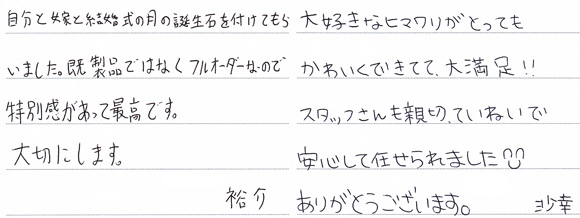 自分と嫁と結婚式の月の誕生石を付けてもら
いました。既製品ではなくフルオーダーなので
特別感があって最高です。
大切にします。
裕介
大好きなヒマワリがとっても
かわいくできてて、大満足!!
スタッフさんも親切、ていねいで
安心して任せられました
ありがとうございます。 沙幸